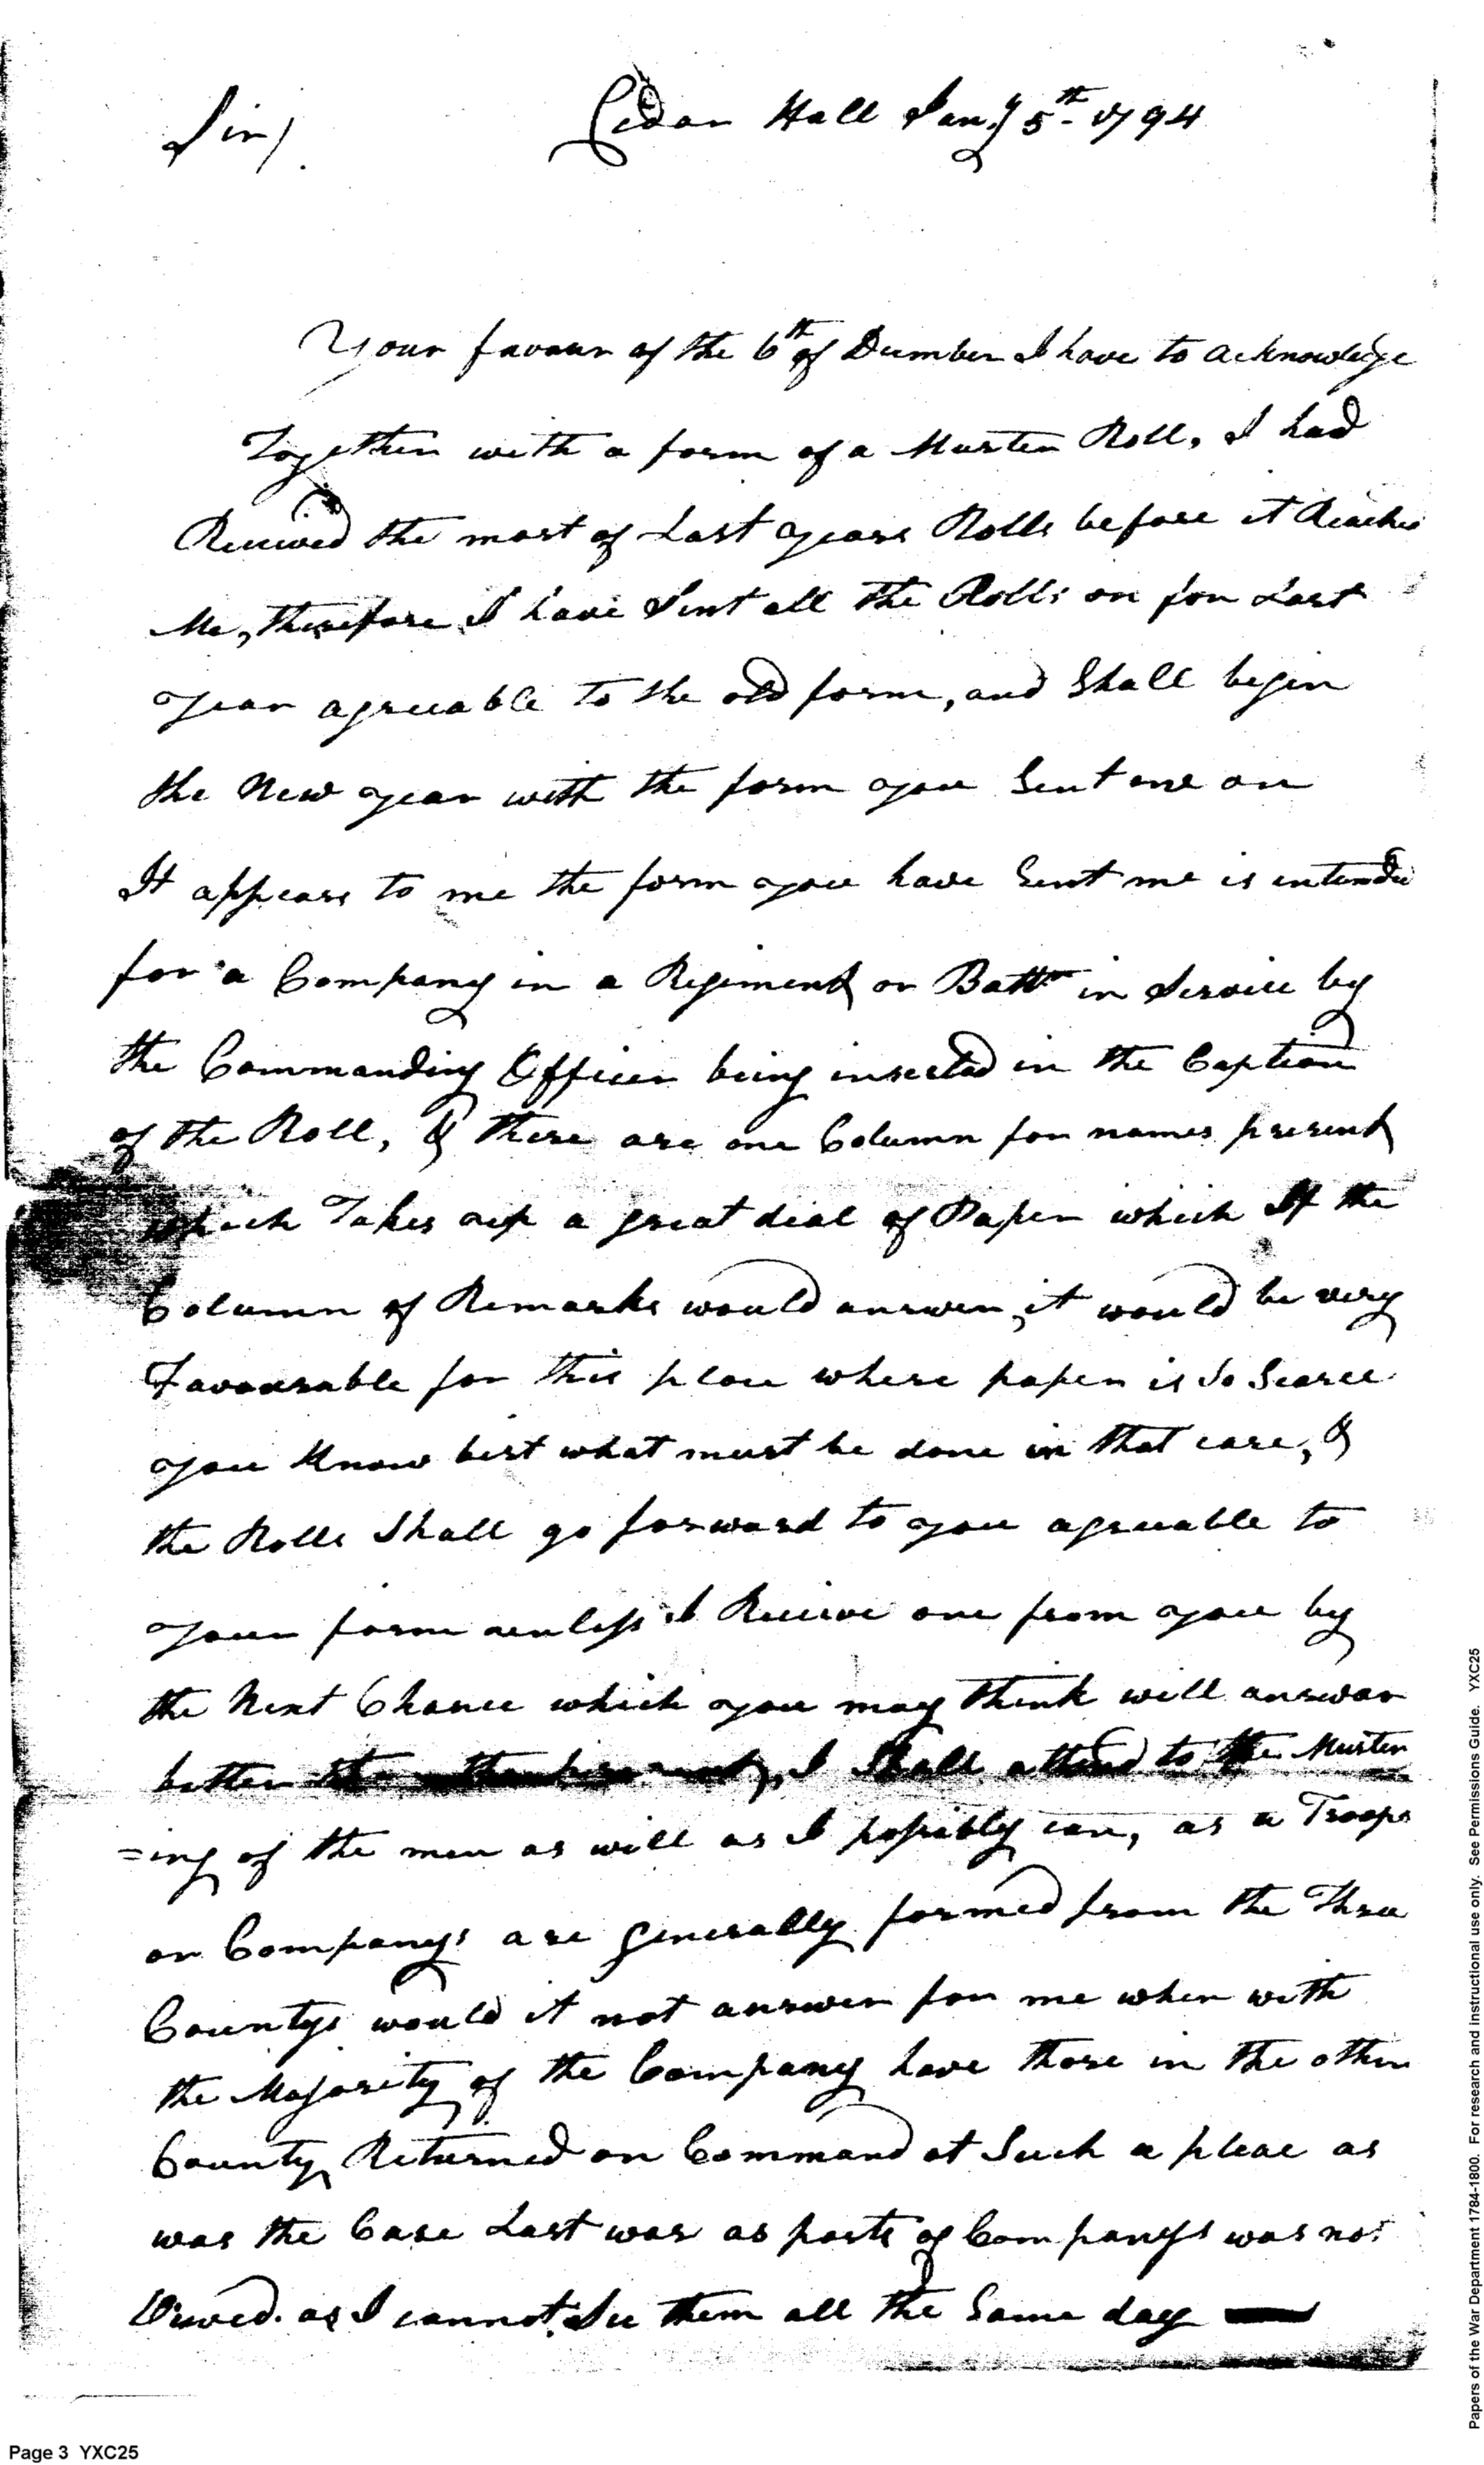 Cedar Hall Jany. 5th 1794
Sir/
Your favour of the 6th of December I have to acknowledge
Together with a form of a Muster Roll, I had
Received the most of Last years Rolls before it Reached
Me, therefore I have Sent all the Rolls on for Last
year agreeable to the old form, and Shall begin
the New year with the form you Sent me on
It appears to me the form you have Sent me is intended
for a Company in a Regiment or Battn in Service by
the Commanding Officer being inserted in the Caption
of the Roll, & there are one Column for names present
which Takes up a great deal of Paper which If the
Column of Remarks would answer, it would be very
Favourable for this place where paper is So Scarce
you Know best what must be done in that case, &
the Rolls Shall go forward to you agreeable to
your form unless I Receive one from you by
the Next Chance which you may think will answar
better I Shall attend to the Muster
=ing of the men as will as I possibly can, as a Troops
or Companys are generally formed from the Three
Countys would it not answer for me when with
the Majority of the Company have those in the other
County Returned on Command at Such a place as
was the Case Last was as parts of Companys was not
Viewed. as I cannot See them all the Same day
Page 3 YXC25
Papers of the War Department 1784-1800. For research and instructional use only. See Permissions Guide. YXC25